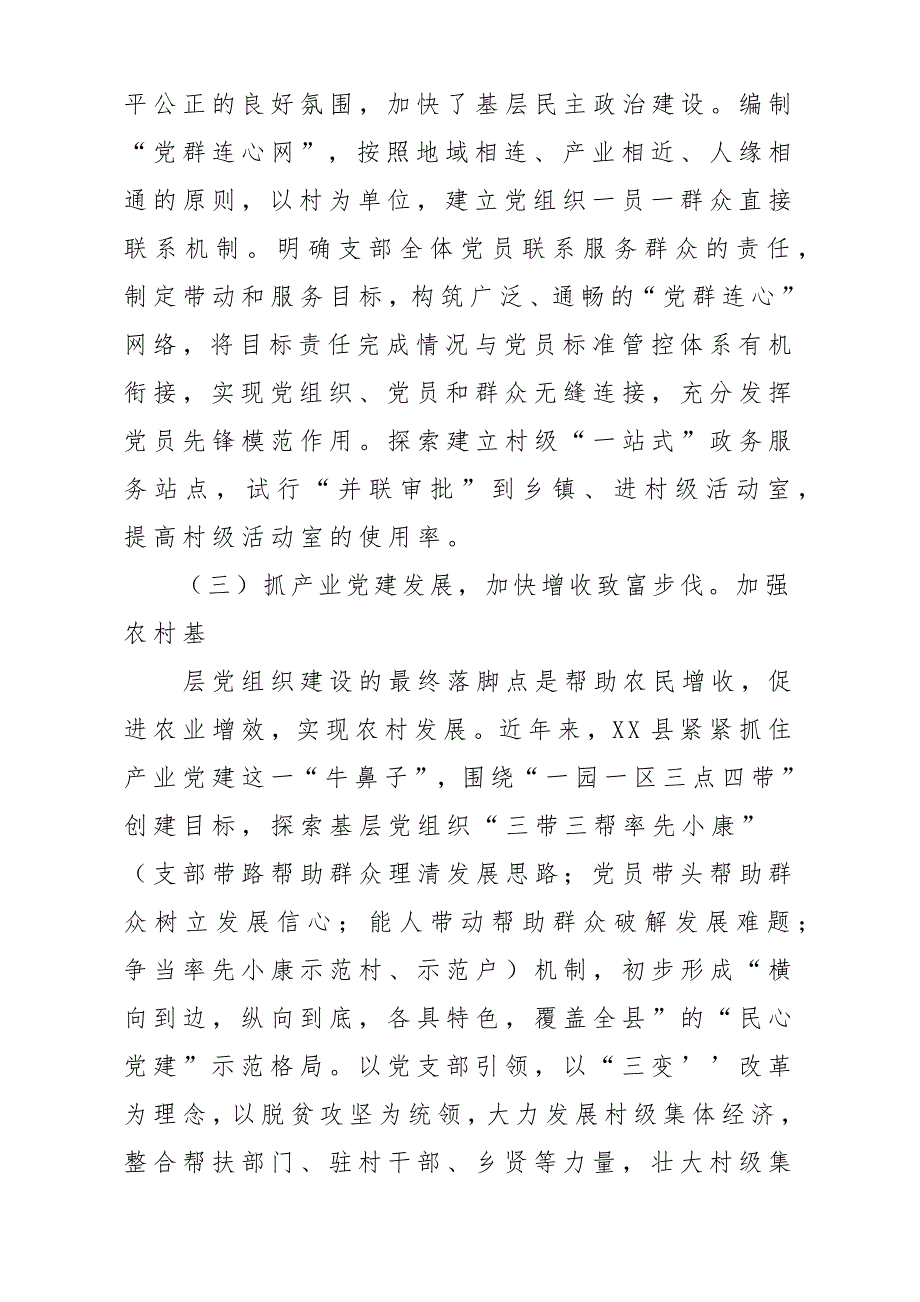 平公正的良好氛围，加快了基层民主政治建设。编制
“党群连心网”，按照地域相连、产业相近、人缘相
通的原则，以村为单位，建立党组织一员一群众直接
联系机制。明确支部全体党员联系服务群众的责任，
制定带动和服务目标，构筑广泛、通畅的“党群连心”
网络，将目标责任完成情况与党员标准管控体系有机
衔接，实现党组织、党员和群众无缝连接，充分发挥
党员先锋模范作用。探索建立村级“一站式”政务服
务站点，试行“并联审批”到乡镇、进村级活动室，
提高村级活动室的使用率。
（三）抓产业党建发展，加快增收致富步伐。加强
农村基
层党组织建设的最终落脚点是帮助农民增收，促
进农业增效，实现农村发展。近年来，XX县紧紧抓住
产业党建这一“牛鼻子”，围绕“一园一区三点四带”
创建目标，探索基层党组织“三带三帮率先小康”
（支部带路帮助群众理清发展思路；党员带头帮助群
众树立发展信心；能人带动帮助群众破解发展难题；
争当率先小康示范村、示范户）机制，初步形成“横
向到边，纵向到底，各具特色，覆盖全县”的“民心
党建”示范格局。以党支部引领，以“三变’’改革
为理念，以脱贫攻坚为统领，大力发展村级集体经济，
整合帮扶部门、驻村干部、乡贤等力量，壮大村级集